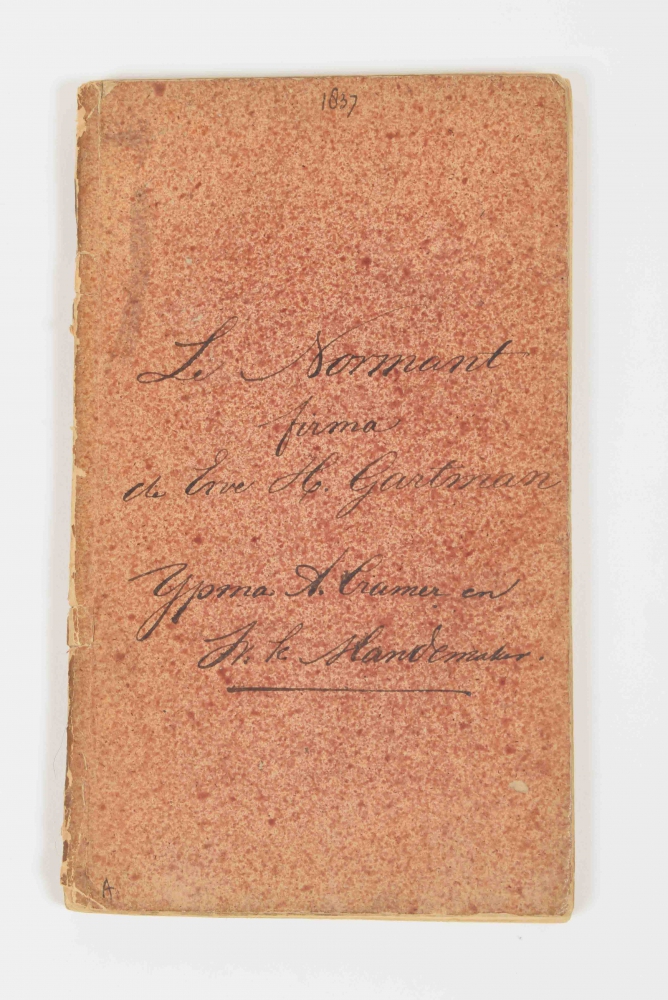 1837
Le Normant
firma
de Erve H. Gartman
Ypma A. Cramer en
Mandemaker.
A